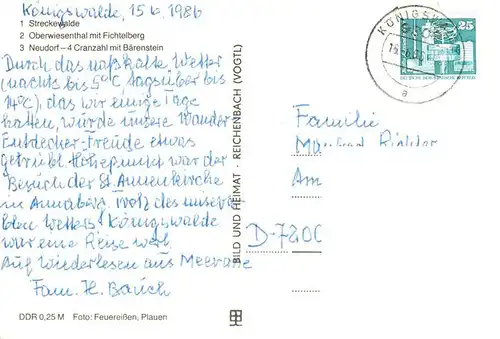 Königswalde, 15.6.1986
1 Streckewalde
2 Oberwiesenthal mit Fichtelberg
3 Neudorf – 4 Cranzahl mit Bärenstein
Durch das naßkalte Wetter
(nachts bis 5°C tagsüber bis
14°C), das wir einige Tage
hatten, wurde unsere Wander
Entdecker-Freude etwas
getrübt. Höhepunkt war der
Besuch der St. Annenkirche
in Annaberg. Trotz des miserablen Wetters: Königswalde
war eine Reise wert.
Auf Wiederlesen aus Meerane
Fam. H. Bauch
DDR 0,25 M Foto: Feuereißen, Plauen
BILD UND HEIMAT · REICHENBACH (VOGTL)
KÖNIGSW
a
25
Familie
Manfred Richter
Am
D-7200